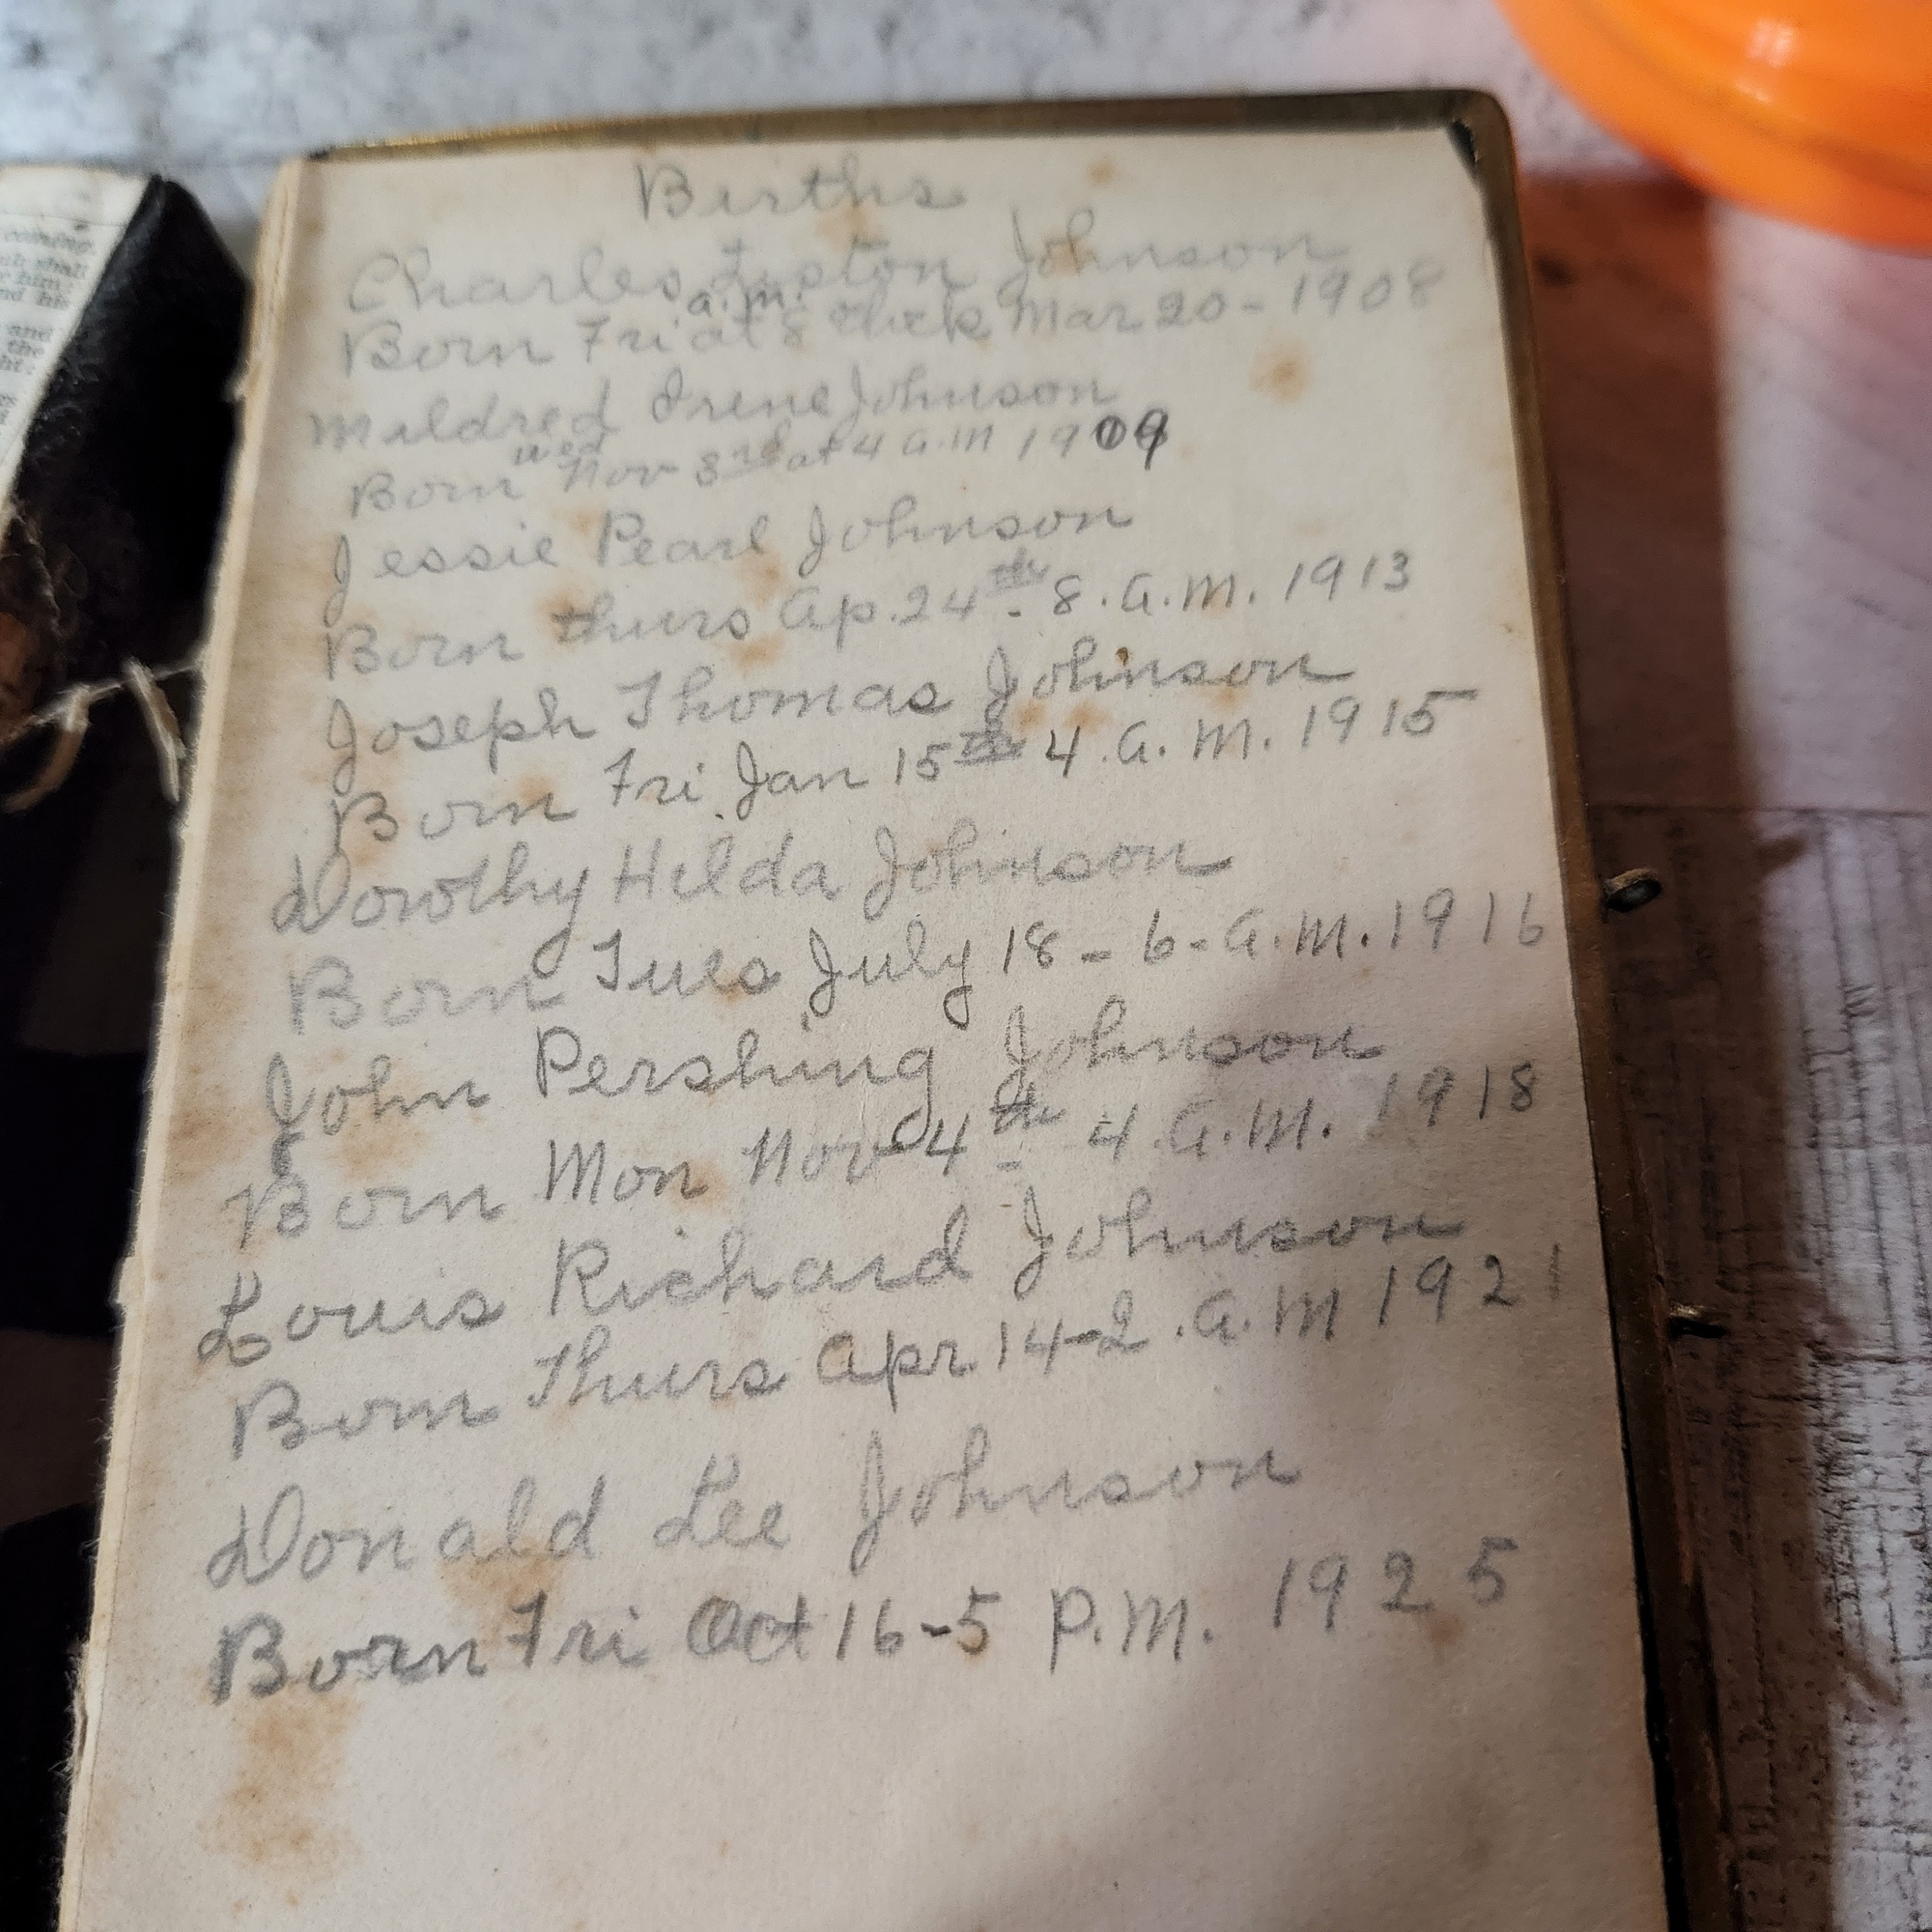 Births
Charles Johnson
a.m.
Born Fri at 8 Mar 20 - 1908
Mildred Irene Johnson
wed
Born Nov 3rd at 4 a.m 1909
Jessie Pearl Johnson
Born thurs Ap. 24th. 8. A.M. 1913
Joseph Thomas Johnson
Born Fri. Jan 15th 4. A. M. 1915
Dorothy Hilda Johnson
Born Tues July 18 - 6 - A.M. 1916
John Pershing Johnson
Born Mon Nov 4th 4. A.M. 1918
Louis Richard Johnson
Born Thurs Apr 14 - 2. A.M 1921
Donald Lee Johnson
Born Fri Oct 16 - 5 P.M. 1925
coming
shall
him
and his
and
the